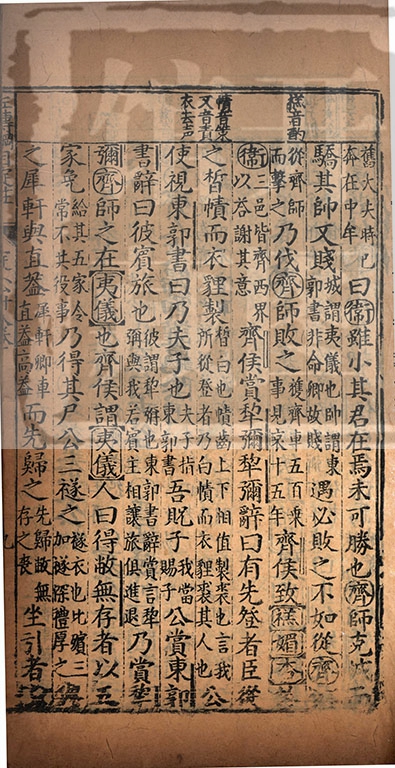 禚音酌
幘音策
又音責
衣去声
舊大夫時已奔在中年曰衛雖小其君在焉未可勝也齊師克城而
驕其帥又賤城謂夷儀也帥謂東郭書非命卿故賤遇必敗之不如從齊
從齊師而擊之乃伐齊師敗之獲齊車五百乗事見哀十五年齊侯致禚媚杏於
衛三邑皆齊西界以荅謝其意齊侯賞犂彌犂彌辭曰有先登者臣從
之皙幘而衣貍製皙白也幘齒上下相值製裘也言我所從登者乃白幘而衣貍裘其人也公
使視東郭書曰乃夫子也夫子指東郭書吾貺子我當賜子公賞東郭
書辭曰彼賓旅也彼謂犂彌也東郭書辭賞言犂彌與我若賓主相讓旅俱進退乃賞犂
彌齊師之在夷儀也齊侯謂夷儀人曰得敝無存者以五
家免給其五家令常不共役事乃得其尸公三襚之襚衣也比殯三加襚深禮厚之與
之犀軒與直蓋犀軒卿車直蓋高蓋而先歸之先歸敝無存之喪坐引者